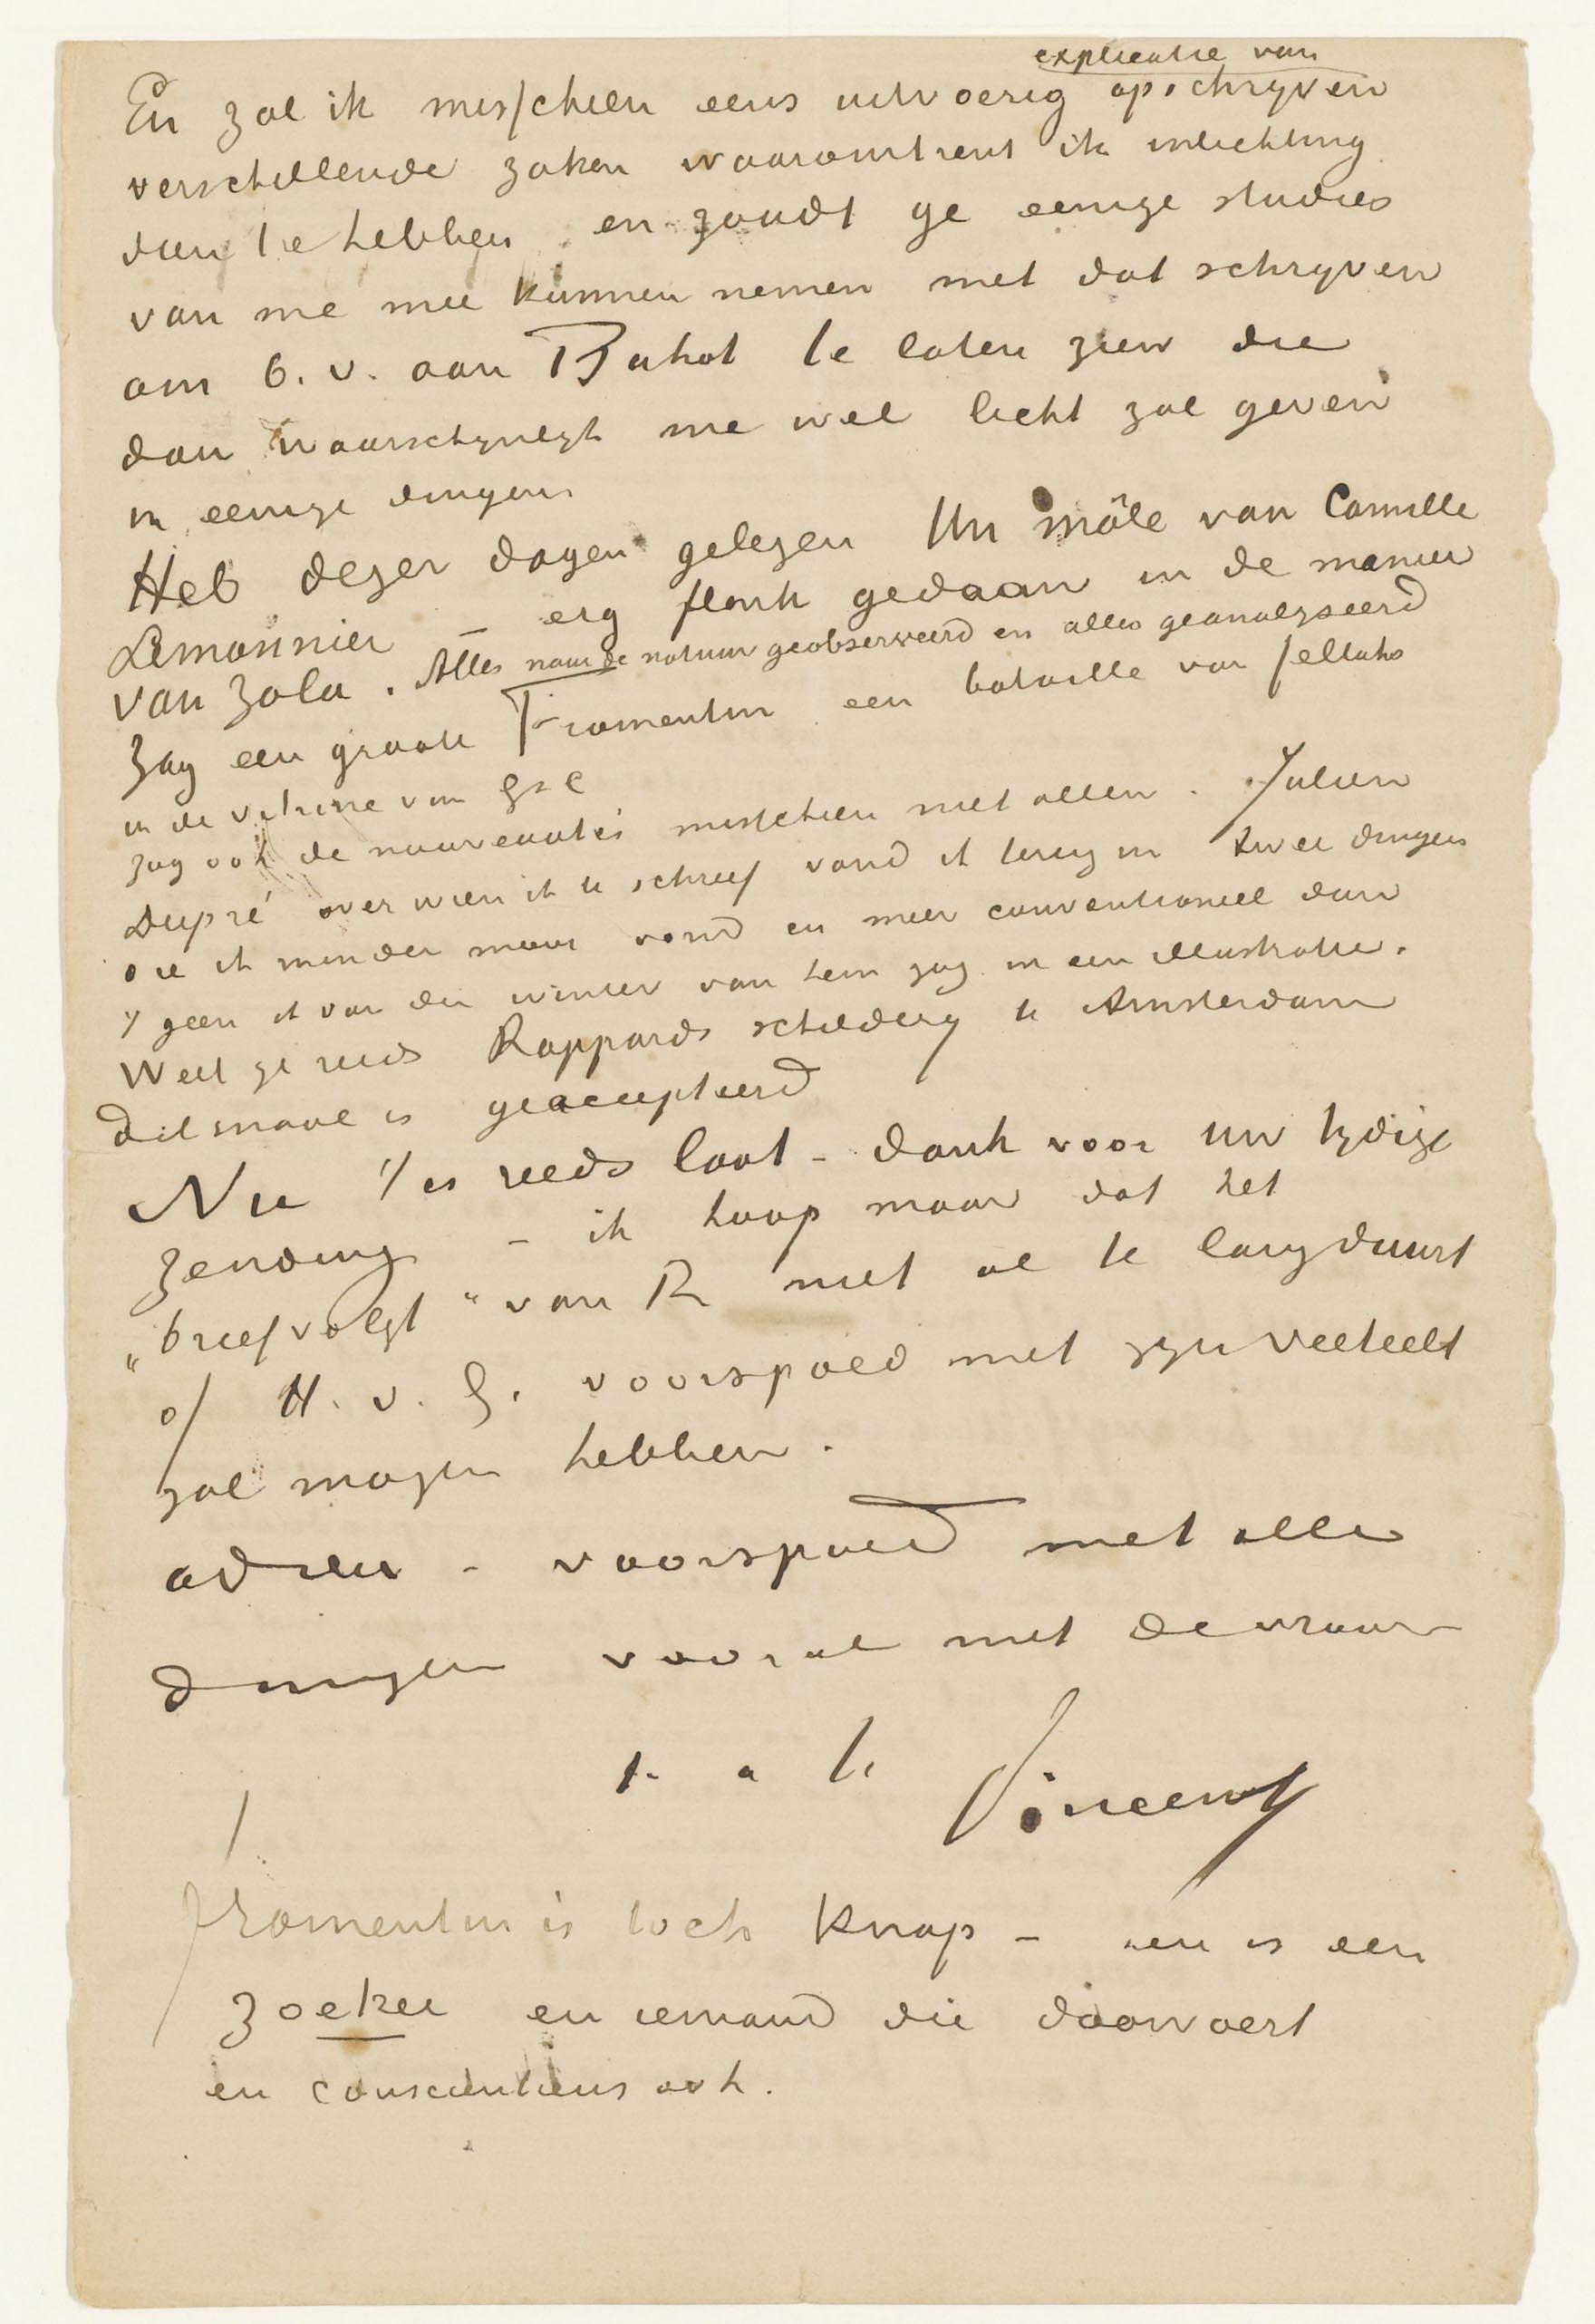 explicatie van
En zal ik misschien eens uitvoerig opschryven
verschillende zaken waaromtrent ik inlichting
dien te hebben en zoudt ge eenige studies
van me mee kunnen nemen met dat schryven
om b.v. aan Buhot te laten zien die
dan waarschynlyk me wel licht zal geven
in eenige dingen
Heb dezer dagen gelezen Un mâle van Camille
Lemonnier – erg flink gedaan in de manier
van Zola. Alles naar de natuur geobserveerd en alles geanalyseerd
Zag een groote Fromentin een bataille van fellahs
in de vitrine van G&C
zag ook de nouveautés misschien niet allen. Julien
Dupré over wien ik u schreef vond ik terug in twee dingen
die ik minder mooi vond en meer conventioneel dan
't geen ik van den winter van hem zag in een illustratie.
Weet ge reeds Rappards schildery te Amsterdam
ditmaal is geaccepteerd
Nu 't is reeds laat – dank voor uw tydige
zending – ik hoop maar dat het
„brief volgt" van R niet al te lang duurt
of H.v.G. voorspoed met zyn veeteelt
zal mogen hebben.
adieu – voorspoed met alle
dingen vooral met de vrouw
t. à t. Vincent
Fromentin is toch knap – en is een
zoeker en iemand die doorvoert
en conscientieus ook.